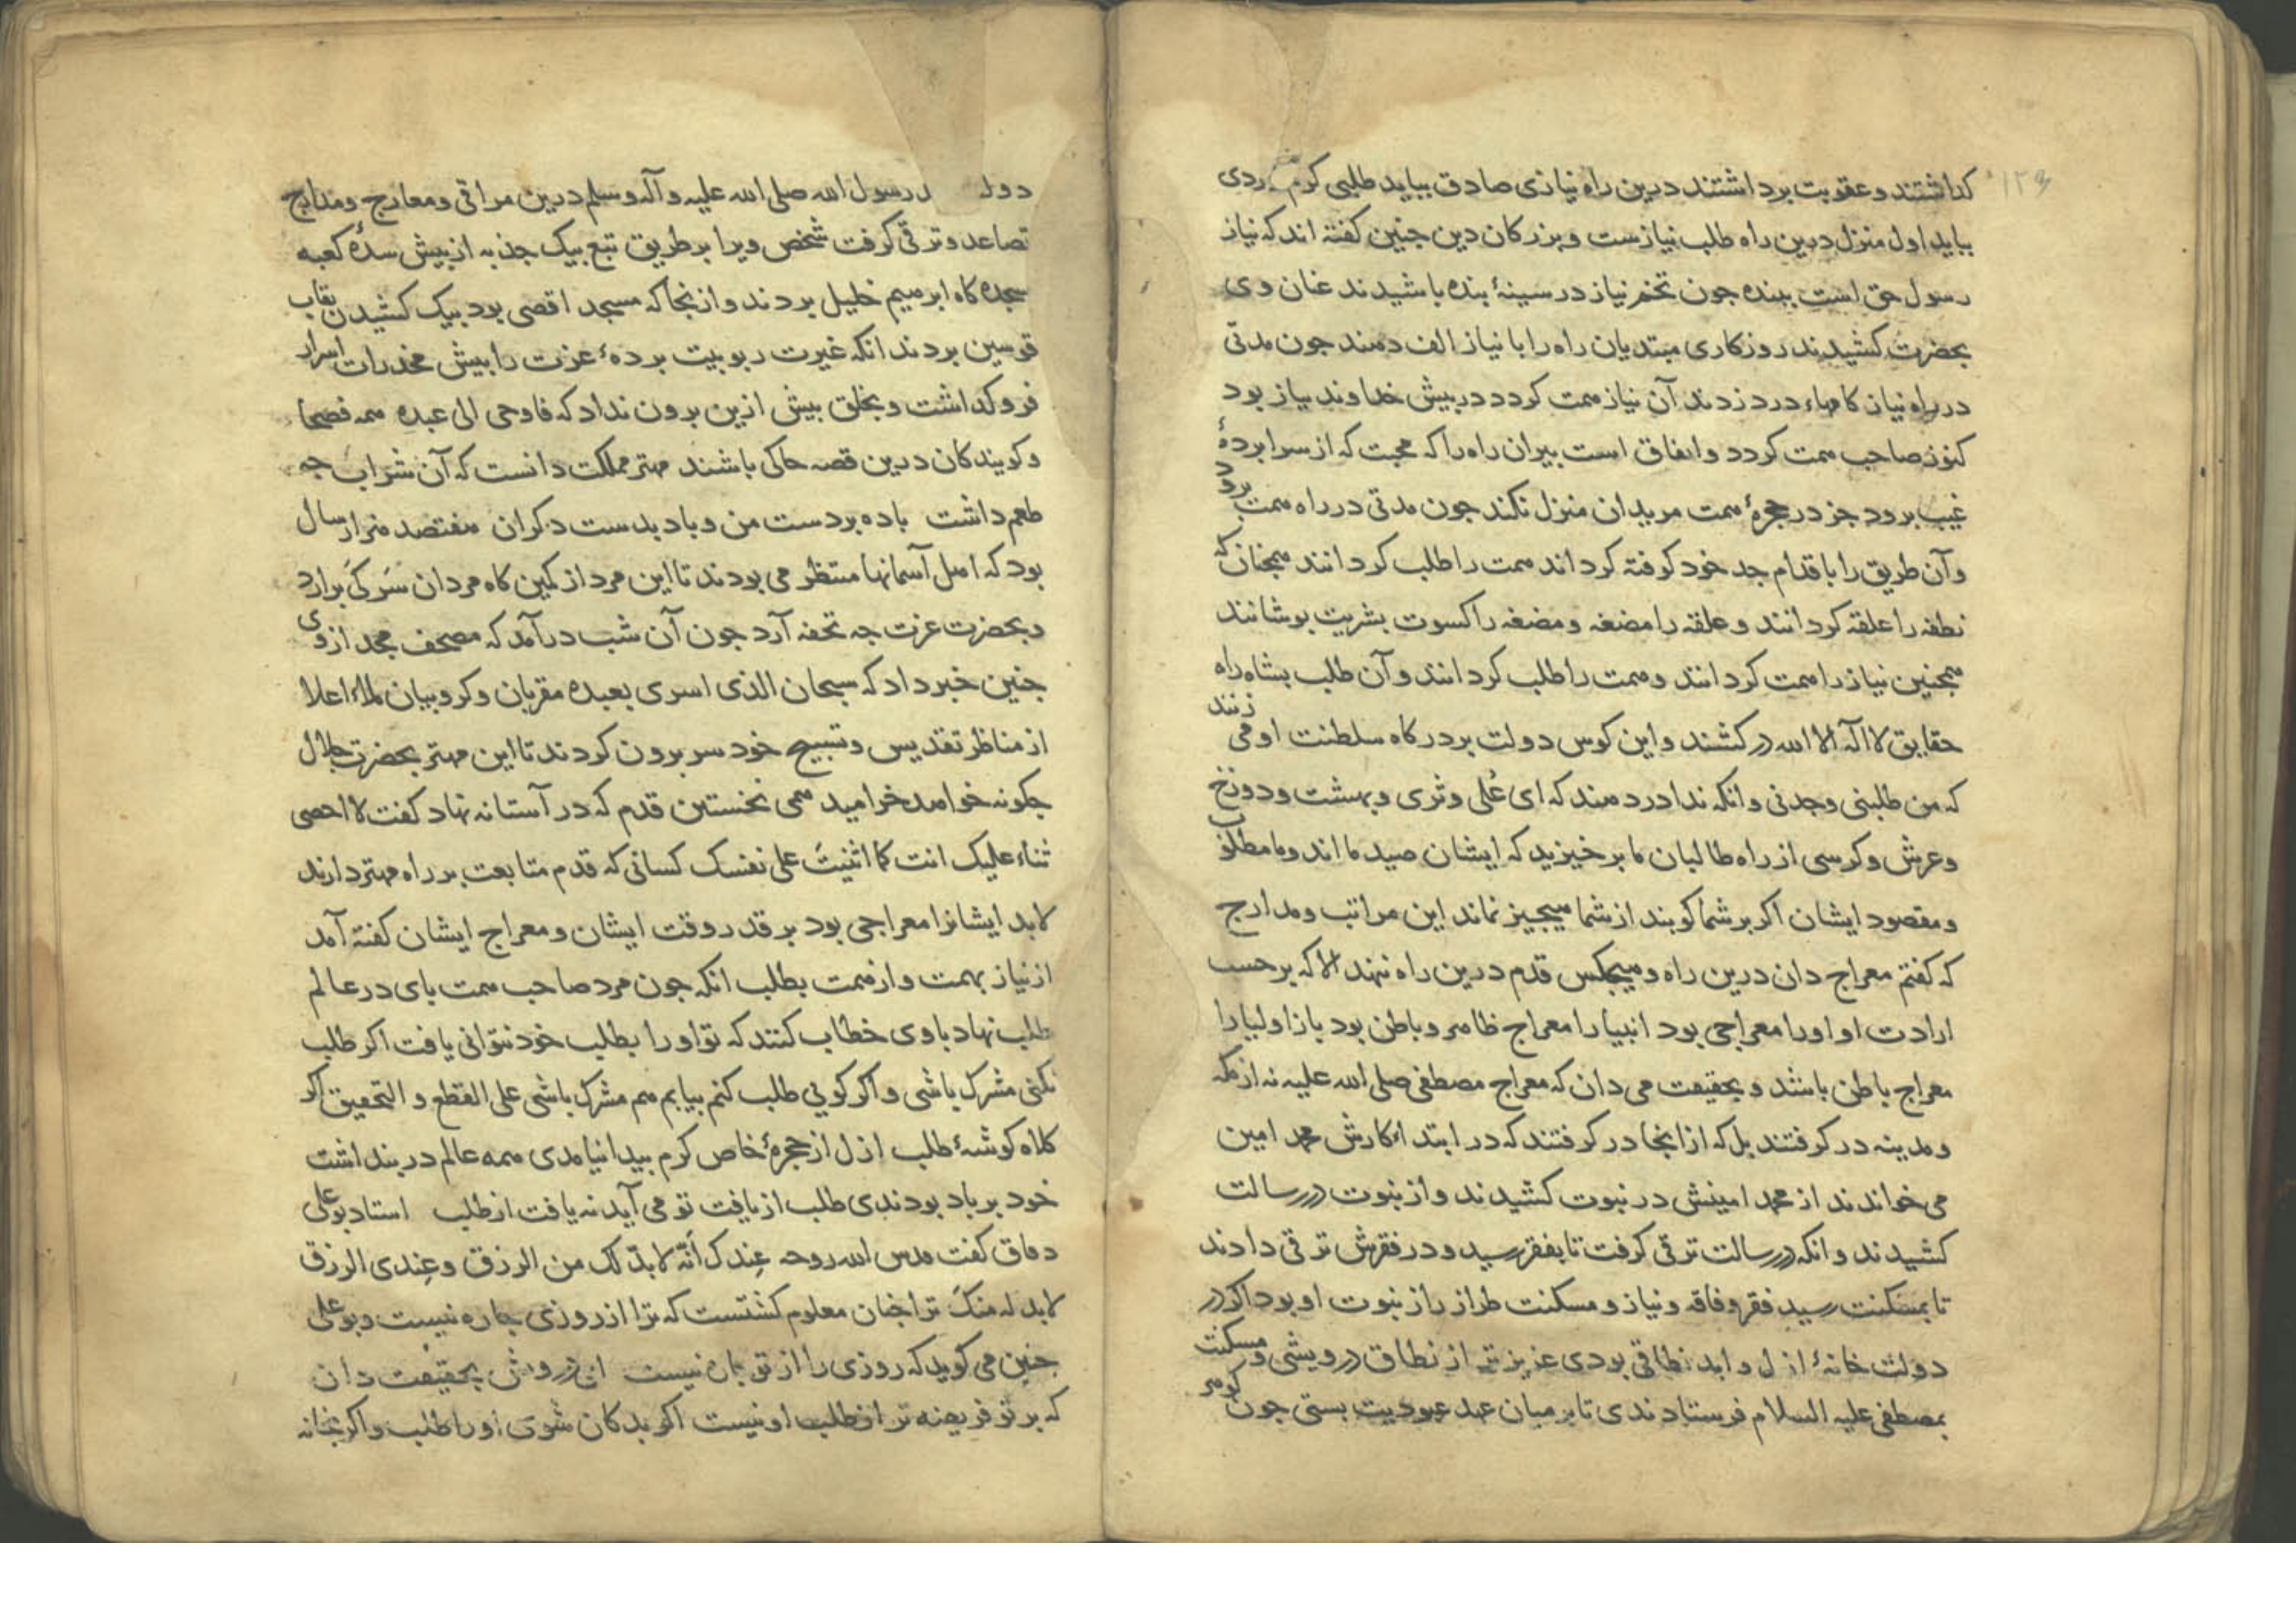 كذاشتند و عقوبت برداشتند درین راه نیازی صادق بباید طلبی کرم ردی
بباید اول منزل درین راه طلب نیازست و بزرکان دین جنین کفته اند که نیاز
رسول حق است ببنده جون تخم نیاز در سینهٔ بنده باشیدند عنان وی
بحضرت کشیدند روزکاری مبتدیان راه را با نیاز الف دهند جون مدتی
در راه نیاز کامهاء درد زدند آن نیاز همت کردد در بیش خداوند نیاز بود
کنون صاحب همت کردد و اتفاق است بیران راه را که محبت که از سرابردهٔ
غیب برود جز در حجرهٔ همت مریدان منزل نکند جون مدتی در راه همت برود
و آن طریق را با قدام جد خود کوفته کرداند همت را طلب کردانند همجنان که
نطفه را علقه کردانند و علقه را مضغه و مضغه را کسوت بشریت بوشانند
همجنین نیاز را همت کردانند و همت را طلب کردانند و آن طلب بشاه راه
حقایق لا اله الا الله در کشند و این کوس دولت بر درکاه سلطنت او می زنند
که من طلبنی وجدنی و انکه ندا در دهند که ای عُلی و ثری و بهشت و دوزخ
و عرش و کرسی از راه طالبان ما برخیزید که ایشان صید ما اند و ما مطلوب
و مقصود ایشان اکر بر شما کوبند از شما هیجیز نماند این مراتب و مدارج
که کفتم معراج دان درین راه و هیجکس قدم درین راه ننهد الا که بر حسب
ارادت او او را معراجی بود انبیا را معراج ظاهر و باطن بود باز اولیا را
معراج باطن باشد و بحقیقت می دان که معراج مصطفی صلی الله علیه نه از مکه
و مدینه در کرفتند بل که از انجا در کرفتند که در ابتداء کارش محمد امین
می خواندند از محمد امینش در نبوت کشیدند و از نبوت در رسالت
کشیدند و انکه در رسالت ترقی کرفت تا بفقر رسید و در فقرش ترقی دادند
تا بمسکنت رسید فقر و فاقه و نیاز و مسکنت طراز راز نبوت او بود اکر در
دولت خانهٔ ازل و ابد نطاقی بودی عزیزتر از نطاق درویشی و مسکنت
بمصطفی علیه السلام فرستادندی تا بر میان عهد عبودیت بستی جون کوهر
دولت رسول الله صلی الله علیه و آله و سلم درین مراقی و معارج و مدارج
تصاعد و ترقی کرفت شخص ویرا بر طریق تبع بیک جذبه از بیش سدهٔ کعبه
سجده کاه ابرهیم خلیل بردند و از نجا که مسجد اقصی بود بیک کشیدن نقاب
قوسین بردند انکه غیرت ربوبیت بردهٔ عزت را بیش مخدرات اسرار
فروکذاشت و بخلق بیش ازین برون نداد که فاوحی الی عبده همه فصحا
و کویندکان درین قصه حاکی باشند مهتر مملکت دانست که آن شراب جه
طعم داشت باده بر دست من و باد بدست دکران هفتصد هزار سال
بود که اهل آسمانها منتظر می بودند تا این مرد از کمین کاه مردان سر کی برارد
و بحضرت عزت جه تحفه آرد جون آن شب درآمد که مصحف مجد از وی
جنین خبر داد که سبحان الذی اسری بعبده مقربان و کروبیان ملاء اعلا
از مناظر تقدیس و تسبیح خود سر برون کردند تا این مهتر بحضرت جلال
جکونه خواهد خرامید همی نخستین قدم که در آستانه نهاد کفت لا احصی
ثناء علیک انت کما اثنیت علی نفسک کسانی که قدم متابعت بر راه مهتر دارند
لابد ایشانرا معراجی بود بر قدر وقت ایشان و معراج ایشان کفته آمد
از نیاز بهمت و از همت بطلب انکه جون مرد صاحب همت بای در عالم
طلب نهاد با وی خطاب کنند که تو او را بطلب خود نتوانی یافت اکر طلب
نکنی مشرک باشی و اکر کویی طلب کنم بیابم هم مشرک باشی علی القطع و التحقیق اکر
کلاه کوشهٔ طلب ازل از حجرهٔ خاص کرم بیدا نیامدی همه عالم در بنداشت
خود بر باد بودندی طلب از یافت تو می آید نه یافت از طلب استاد بوعلی
دقاق کفت قدس الله روحه عندک أنّه لا بدّ لک من الرزق و عندی الرزق
لا بد له منک ترا جنان معلوم کشتست که ترا از روزی جاره نیست و بوعلی
جنین می کوید که روزی را از تو جاره نیست ای درویش بحقیقت دان
که بر تو فریضه تر از طلب او نیست اکر بدکان شوی او را طلب و اکر بخانه